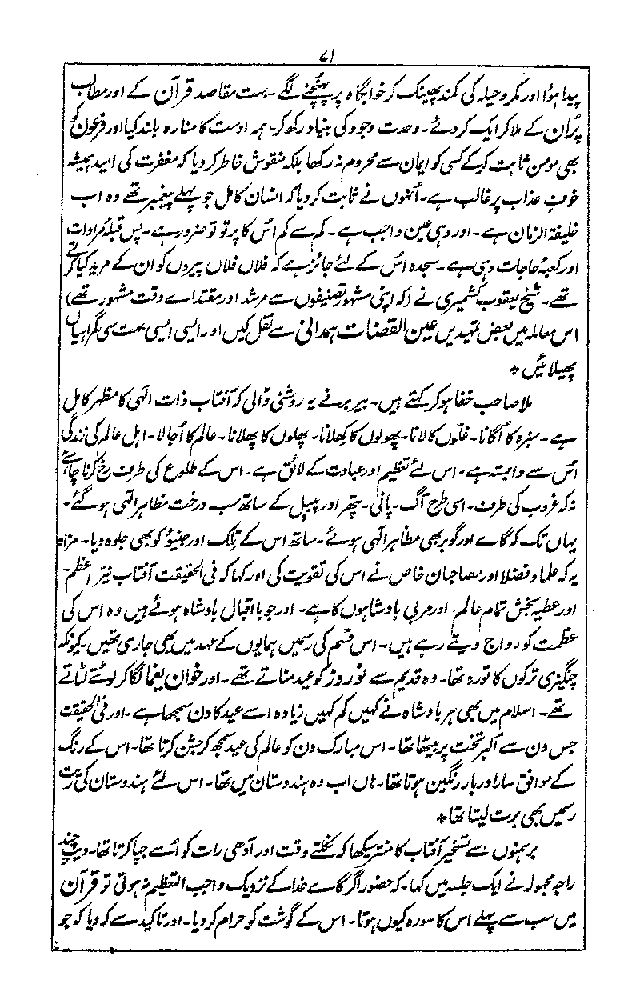 ۷۱
پیدا ہوا اور مکر و حیلہ کی کمند پھینک کر خوابگاہ پر پہنچنے لگے۔ بہت مقاصد قرآن کے اور مطالب
پُران کے ملا کر ایک کر دئے۔ وحدت وجود کی بنیاد رکھ کر۔ ہمہ اوست کا منارہ بلند کیا اور فرعون کو
بھی مومن ثابت کرکے کسی کو ایمان سے محروم نہ رکھا بلکہ منقوش خاطر کر دیا کہ مغفرت کی امید ہمیشہ
خوف عذاب پر غالب ہے۔ اُنھوں نے ثابت کر دیا کہ انسان کامل جو پہلے پیغمبر تھے وہ اب
خلیفۃ الزمان ہے۔ اور وہی عین واجب ہے۔ کم سے کم اُس کا پرتو تو ضرور ہے۔ پس قبلۂ مرادات
اور کعبۂ حاجات وہی ہے۔ سجدہ اُس کے لئے جائز ہے کہ فلاں فلاں پیروں کو ان کے مرید کیا کرتے
تھے۔ شیخ یعقوب کشمیری نے (کہ اپنی مشہور تصنیفوں سے مرشد اور مقتداے وقت مشہور تھے)
اس معاملہ میں بعض تمہیدیں عین القضات ہمدانی سے نقل کیں اور ایسی ایسی بہت سی گمراہیاں
پھیلائیں *
ملا صاحب خفا ہو کر کہتے ہیں۔ بیربر نے یہ روشنی ڈالی کہ آفتاب ذات الٰہی کا مظہر کامل
ہے۔ سبزہ کا اُگانا۔ غلّوں کا لانا۔ پھولوں کا کھلانا۔ پھلوں کا پھلانا۔ عالم کا اُجالا۔ اہل عالم کی زندگی
اُس سے وابستہ ہے۔ اس لئے تعظیم اور عبادت کے لائق ہے۔ اس کے طلوع کی طرف رُخ کرنا چاہئے
نہ کہ غروب کی طرف۔ اسی طرح آگ۔ پانی۔ پتھر اور پیپل کے ساتھ سب درخت مظاہر الٰہی ہو گئے۔
یہاں تک کہ گاے اور گوبر بھی مظاہر الٰہی ہوئے۔ ساتھ اس کے تلک اور جنیؤ کو بھی جلوہ دیا۔ مزا
یہ کہ علما و فضلا اور مصاحبان خاص نے اس کی تقویت کی اور کہا کہ فی الحقیقت آفتاب نیر اعظم۔
اور عطیہ بخش تمام عالم اور مربی بادشاہوں کا ہے۔ اور جو با اقبال بادشاہ ہوئے ہیں وہ اس کی
عظمت کو رواج دیتے رہے ہیں۔ اس قسم کی رسمیں ہمایوں کے عہد میں بھی جاری تھیں۔ کیونکہ
چنگیزی ترکوں کا تورہ تھا۔ وہ قدیم سے نوروز کو عید مناتے تھے۔ اور خوان یغما لگا کر لُٹتے لُٹاتے
تھے۔ اسلام میں بھی ہر بادشاہ نے کہیں کم کہیں زیادہ اسے عید کا دن سمجھا ہے۔ اور فی الحقیقت
جس دن سے اکبر تخت پر بیٹھا تھا۔ اس مبارک دن کو عالم کی عید سمجھ کر جشن کرتا تھا۔ اس کے رنگ
کے موافق سارا دربار رنگین ہوتا تھا۔ ہاں اب وہ ہندوستان میں تھا۔ اس لئے ہندوستان کی ریت
رسمیں بھی برت لیتا تھا *
برہمنوں سے تسخیر آفتاب کا منتر سیکھا کہ نکلتے وقت اور آدھی رات کو اُسے جپا کرتا تھا۔ دیپ چند
راجہ مجہولہ نے ایک جلسہ میں کہا۔ کہ حضور اگر گاے خدا کے نزدیک واجب التعظیم نہ ہوتی تو قرآن
میں سب سے پہلے اس کا سورہ کیوں ہوتا۔ اس کے گوشت کو حرام کر دیا۔ اور تاکید سے کہ دیا کہ جو